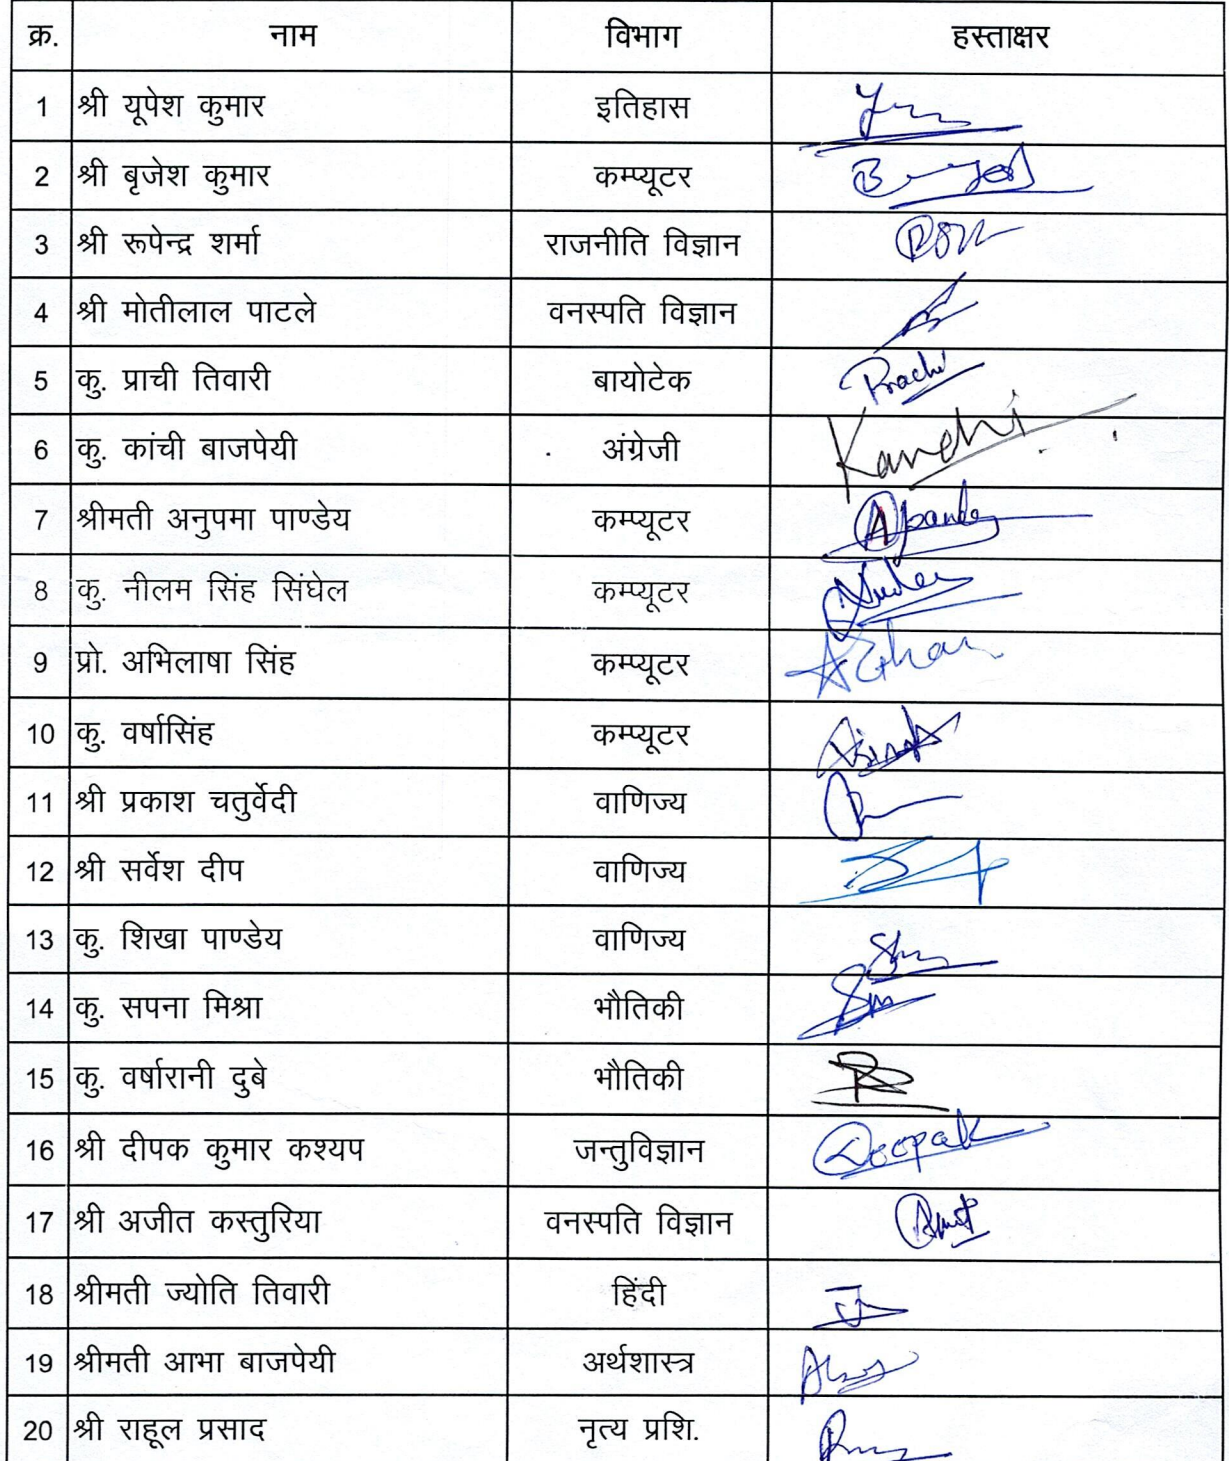 क्र. नाम विभाग हस्ताक्षर
1 श्री यूपेश कुमार इतिहास
2 श्री बृजेश कुमार कम्प्यूटर
3 श्री रूपेन्द्र शर्मा राजनीति विज्ञान
4 श्री मोतीलाल पाटले वनस्पति विज्ञान
5 कु. प्राची तिवारी बायोटेक Prachi
6 कु. कांची बाजपेयी अंग्रेजी Kanchi
7 श्रीमती अनुपमा पाण्डेय कम्प्यूटर
8 कु. नीलम सिंह सिंघेल कम्प्यूटर
9 प्रो. अभिलाषा सिंह कम्प्यूटर
10 कु. वर्षासिंह कम्प्यूटर
11 श्री प्रकाश चतुर्वेदी वाणिज्य
12 श्री सर्वेश दीप वाणिज्य
13 कु. शिखा पाण्डेय वाणिज्य
14 कु. सपना मिश्रा भौतिकी
15 कु. वर्षारानी दुबे भौतिकी
16 श्री दीपक कुमार कश्यप जन्तुविज्ञान Deepak
17 श्री अजीत कस्तुरिया वनस्पति विज्ञान
18 श्रीमती ज्योति तिवारी हिंदी
19 श्रीमती आभा बाजपेयी अर्थशास्त्र
20 श्री राहूल प्रसाद नृत्य प्रशि.